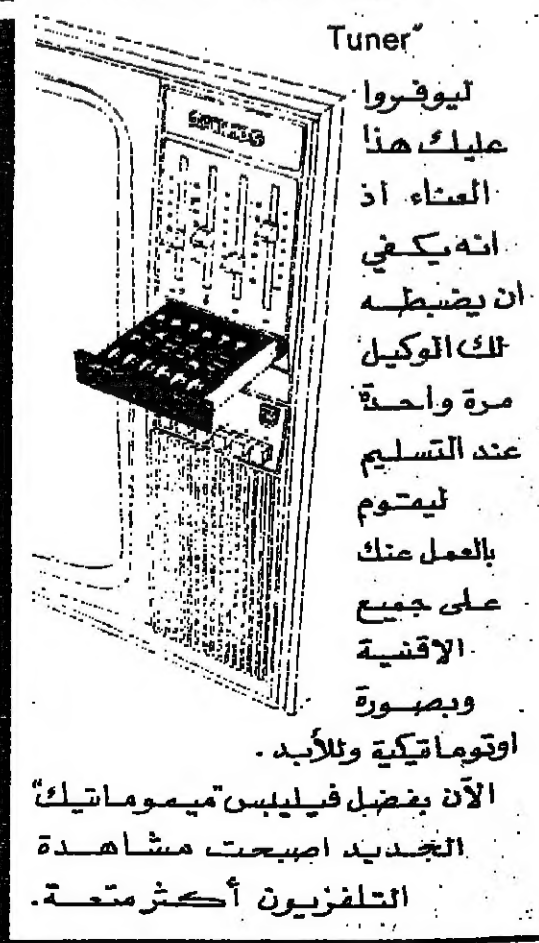 Tuner"
ليوفروا
عليك هذا
العناء اذ
انه يكفي
ان يضبطه
لك الوكيل
مرة واحدة
عند التسليم
ليقوم
بالعمل عنك
على جميع
الاقنية
وبصورة
اوتوماتيكية وللأبد.
الآن بفضل فيليبس "ميموماتيك"
الجديد اصبحت مشاهدة
التلفزيون أكثر متعة.